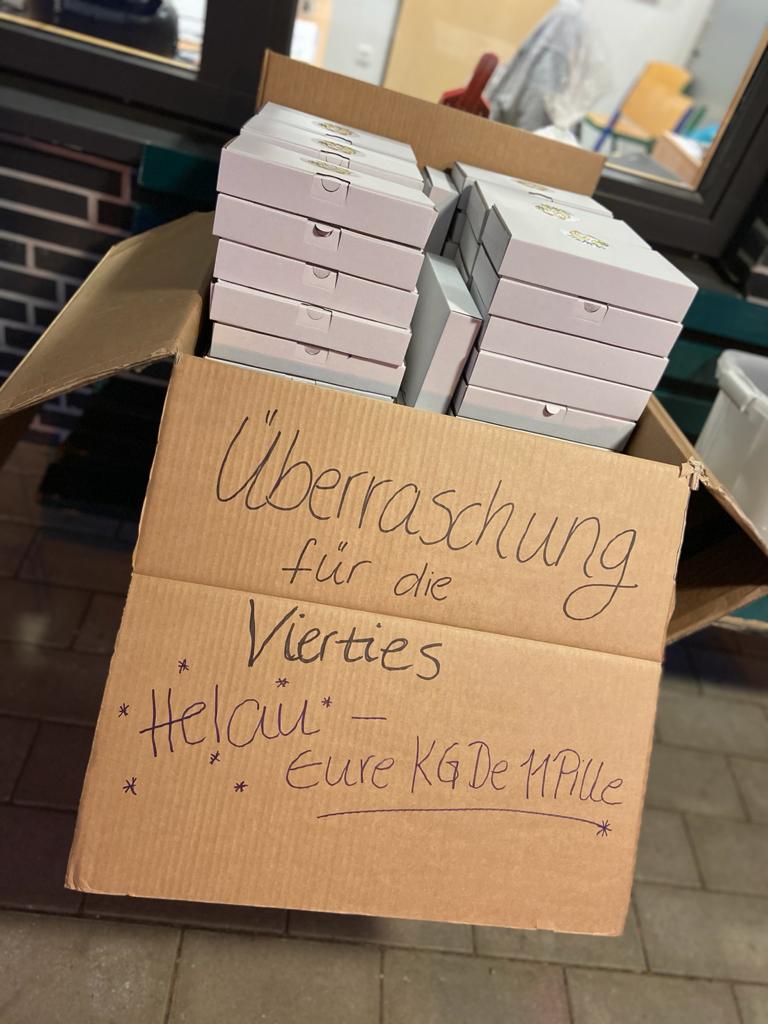 Überraschung
für die
Vierties
Helau –
Eure KG De 11 Pille